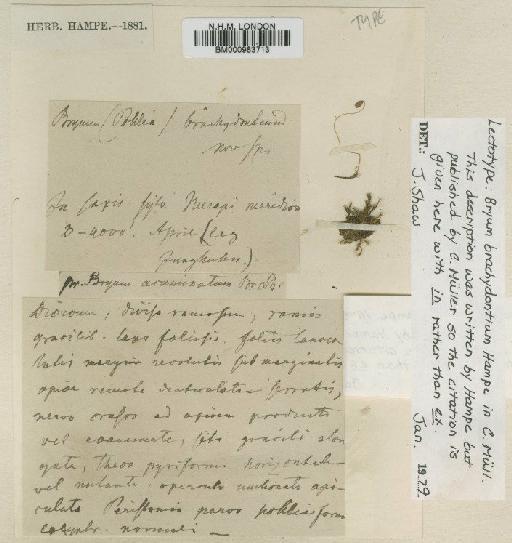 HERB. HAMPE.—1881.
N.H.M. LONDON
BM000983713
TYPE
Bryum (Pohlia) brachydontium
nov sp.
In saxis sylv
3-4000. April (leg
Junghuhn).
Bryum acuminatum
Dioicum, divise ramosum, ramis
gracilib. laxe foliosis. foliis lanceo-
latis margine revolutis submarginatis
apice remote denticulato-serratis,
nervo crasso ad apicem producto
vel evanescente, seta gracili elon
gata, theca pyriformi horizontali
vel nutante. operculo umbonato api-
culato Peristomio parvo pohliaeformi
normali —
Lectotype. Bryum brachydontium Hampe in C. Müll.
This description was written by Hampe but
published by C. Müller so the citation is
given here with in rather than ex.
DET.: J. Shaw Jan. 1979